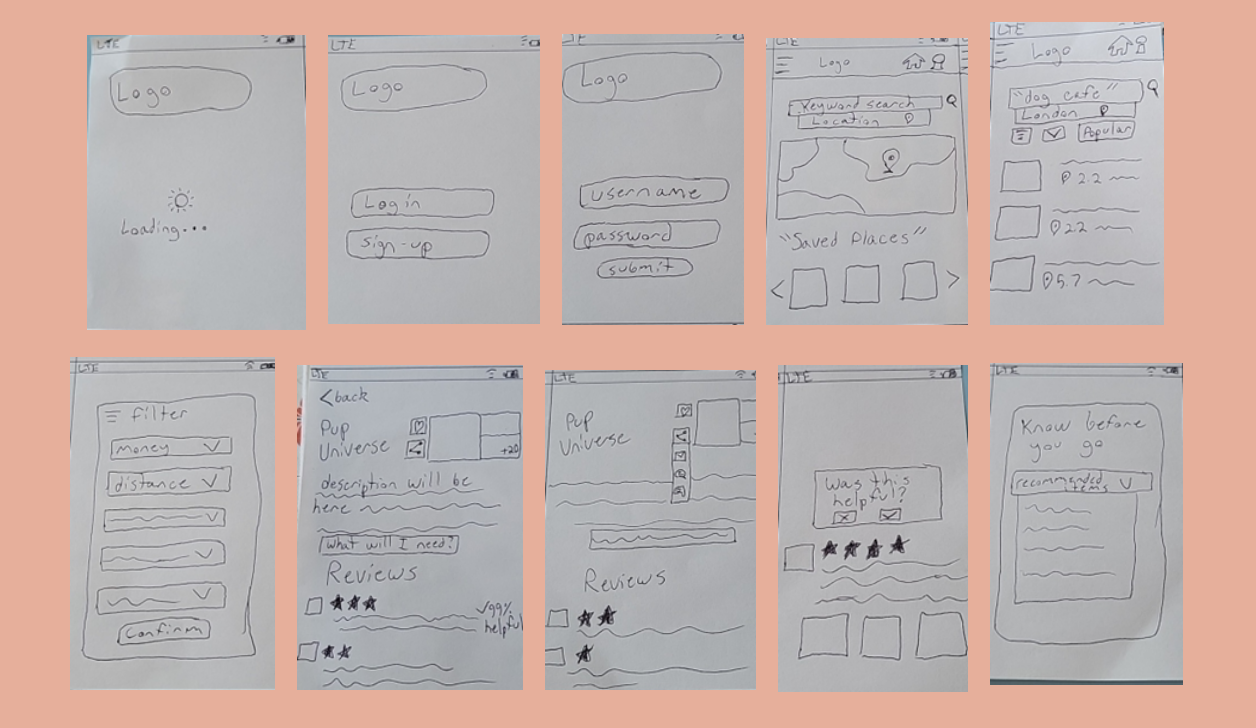 LTE
Logo
Loading...
LTE
Logo
Log in
sign-up
LTE
Logo
username
password
submit
LTE
Logo
Keyword search
Location
"Saved Places"
< >
LTE
Logo
"dog cafe"
London
Popular
2.2
22
5.7
LTE
filter
money
distance
Confirm
LTE
<back
Pup
Universe
+20
description will be
here
What will I need?
Reviews
99%
helpful
LTE
Pup
Universe
Reviews
LTE
Was this
helpful?
LTE
Know before
you go
recommended
items